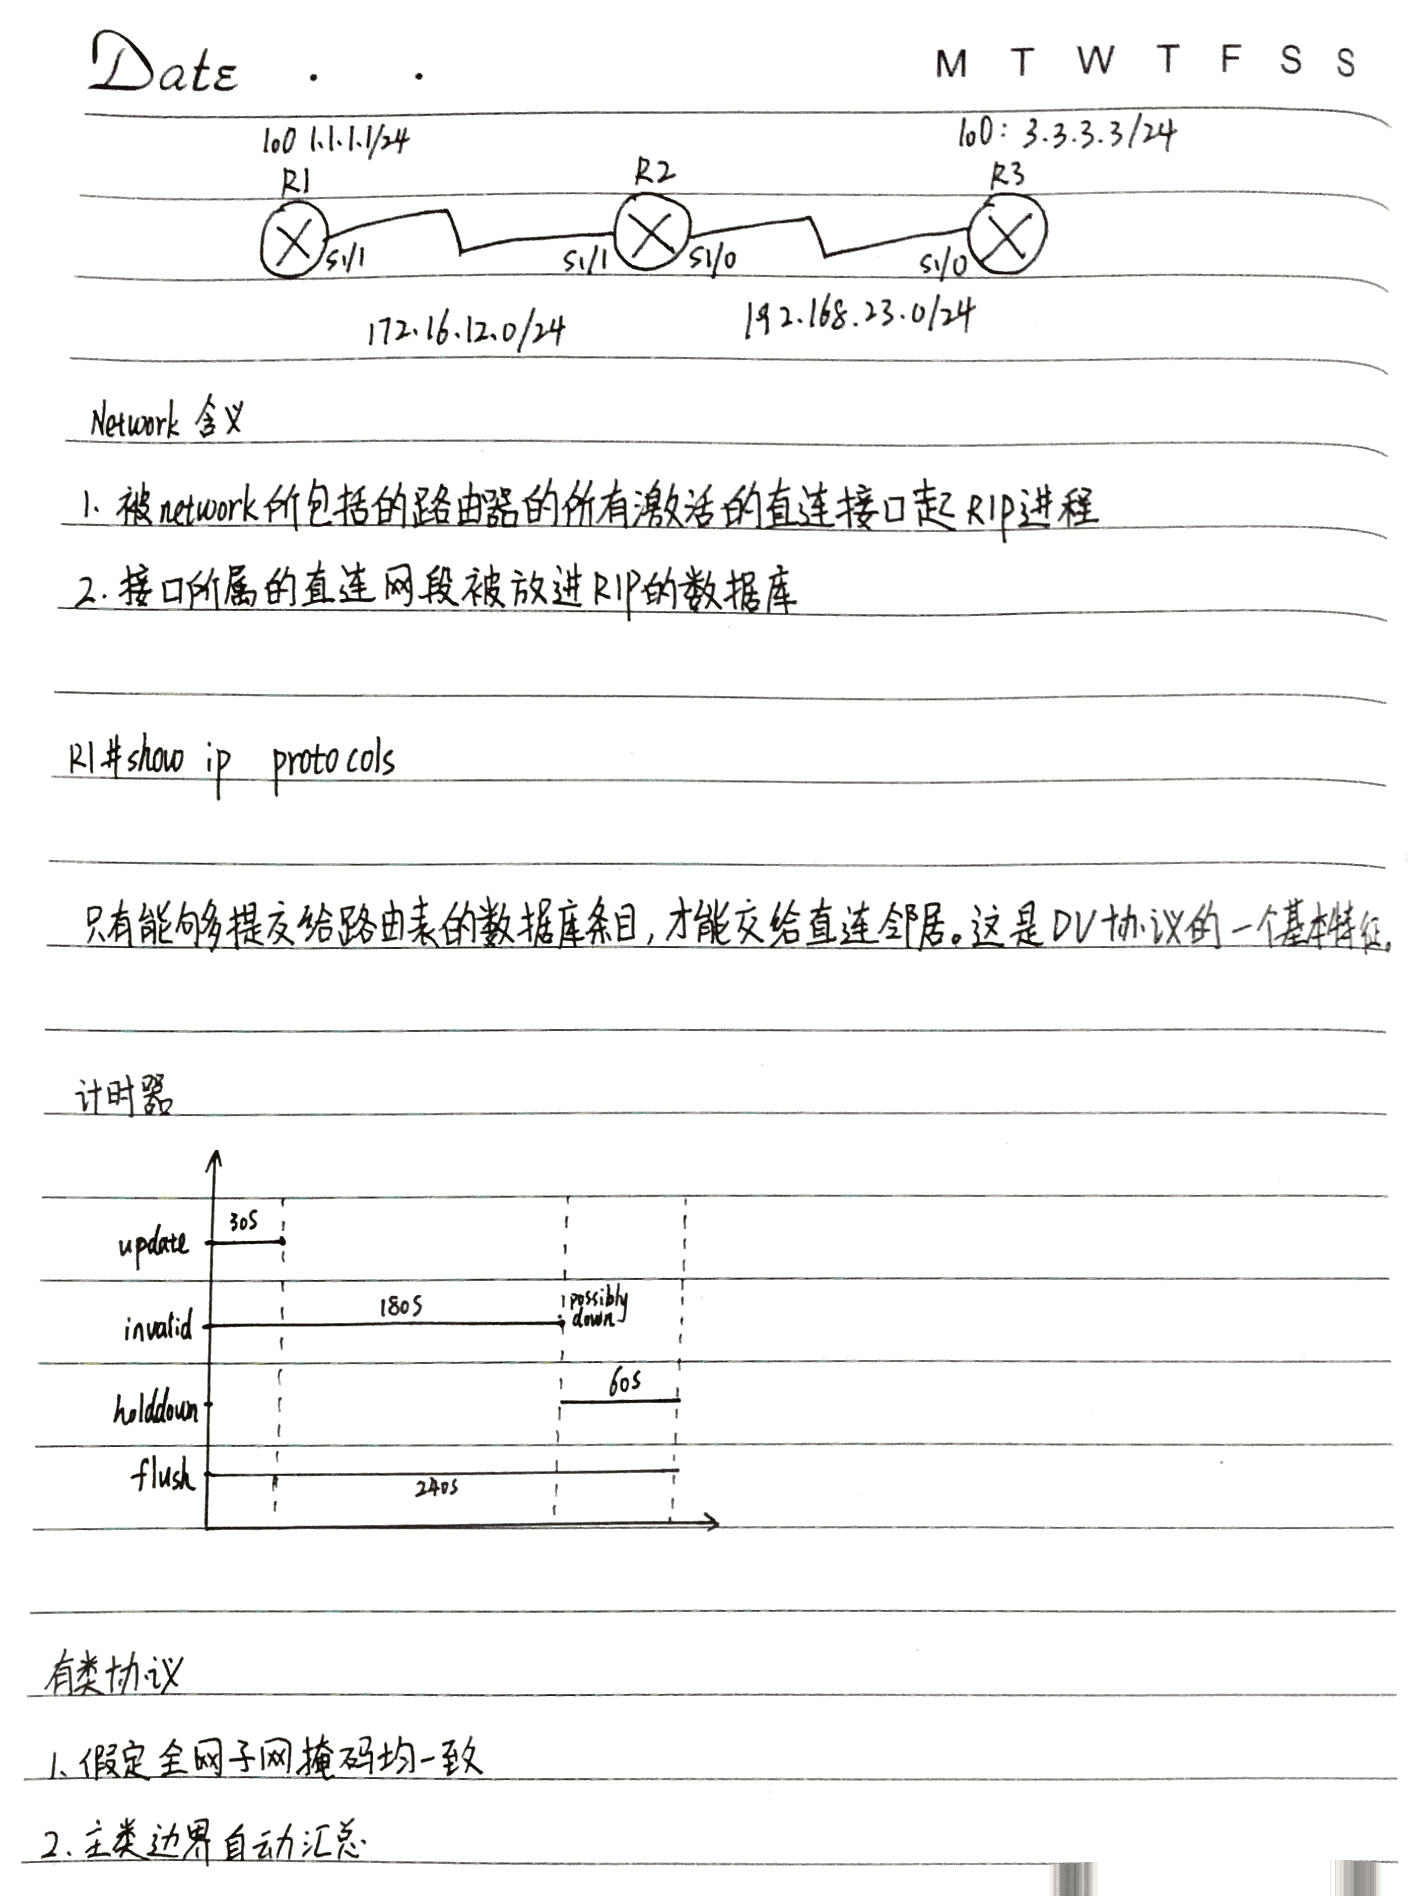 Date . . M T W T F S S
lo0 1.1.1.1/24 lo0: 3.3.3.3/24
R1 R2 R3
S1/1 S1/1 S1/0 S1/0
172.16.12.0/24 192.168.23.0/24
Network 含义
1. 被network所包括的路由器的所有激活的直连接口起RIP进程
2. 接口所属的直连网段被放进RIP的数据库
R1#show ip protocols
只有能够提交给路由表的数据库条目,才能交给直连邻居。这是DV协议的一个基本特征。
计时器
update 30S
invalid 180S possibly
down
holddown 60S
flush 240S
有类协议
1、假定全网子网掩码均一致
2、主类边界自动汇总